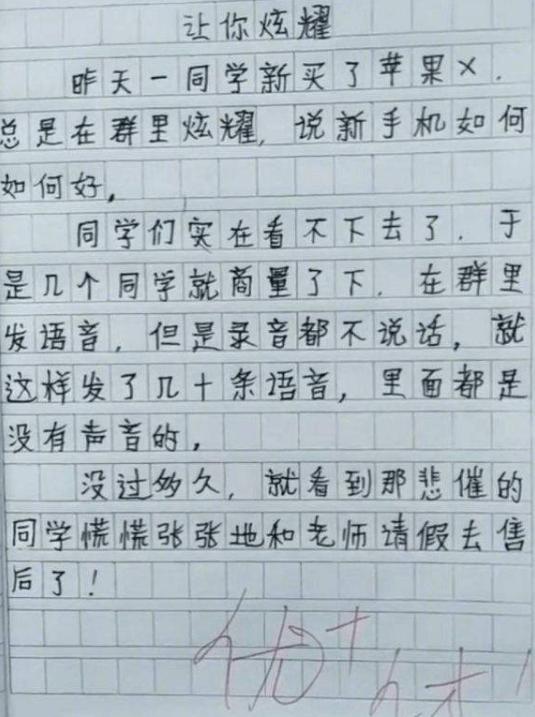 让你炫耀
昨天一同学新买了苹果X.
总是在群里炫耀,说新手机如何
如何好,
同学们实在看不下去了.于
是几个同学就商量了下.在群里
发语音,但是录音都不说话,就
这样发了几十条语音,里面都是
没有声音的,
没过多久,就看到那悲催的
同学慌慌张张地和老师请假去售
后了!
优+